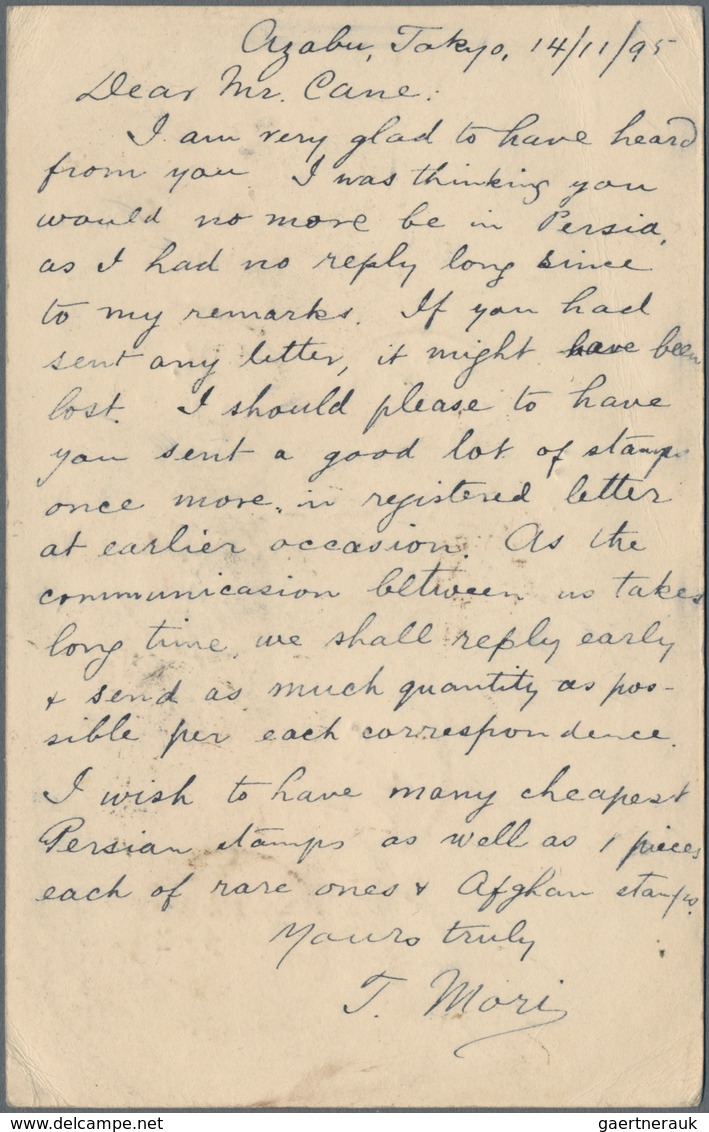 Azabu, Tokyo, 14/11/95
Dear Mr. Cane:
I am very glad to have heard
from you I was thinking you
would no more be in Persia,
as I had no reply long since
to my remarks. If you had
sent any letter, it might have been
lost. I should please to have
you sent a good lot of stamps
once more, in registered letter
at earlier occasion. As the
communicasion between us takes
long time, we shall reply early
& send as much quantity as pos-
sible per each correspondence.
I wish to have many cheapest
Persian stamps as well as 1 pieces
each of rare ones & Afghan stamps.
Yours truly
T. Mori
gaertnerauk